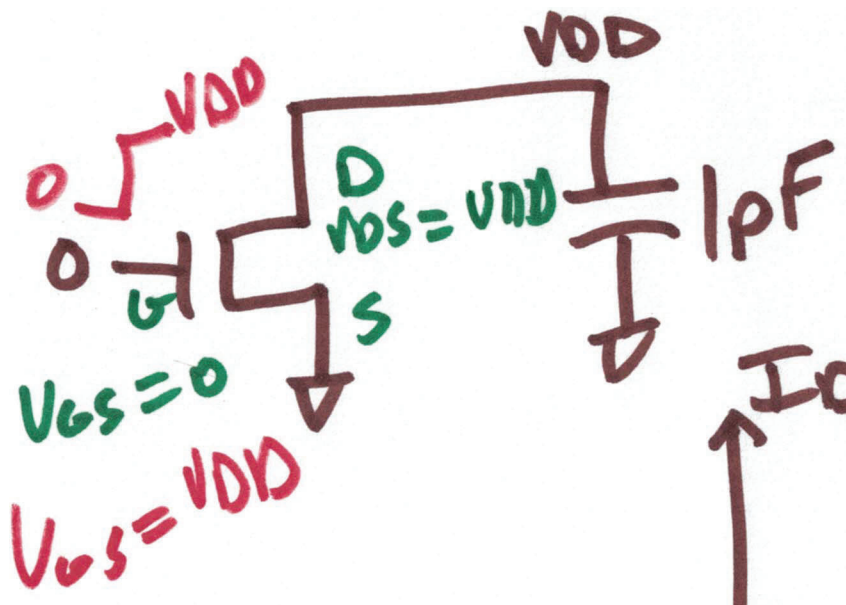 VDD
VDD
0
D
VDS = VDD
1pF
0
G
S
VGS = 0
ID
VGS = VDD